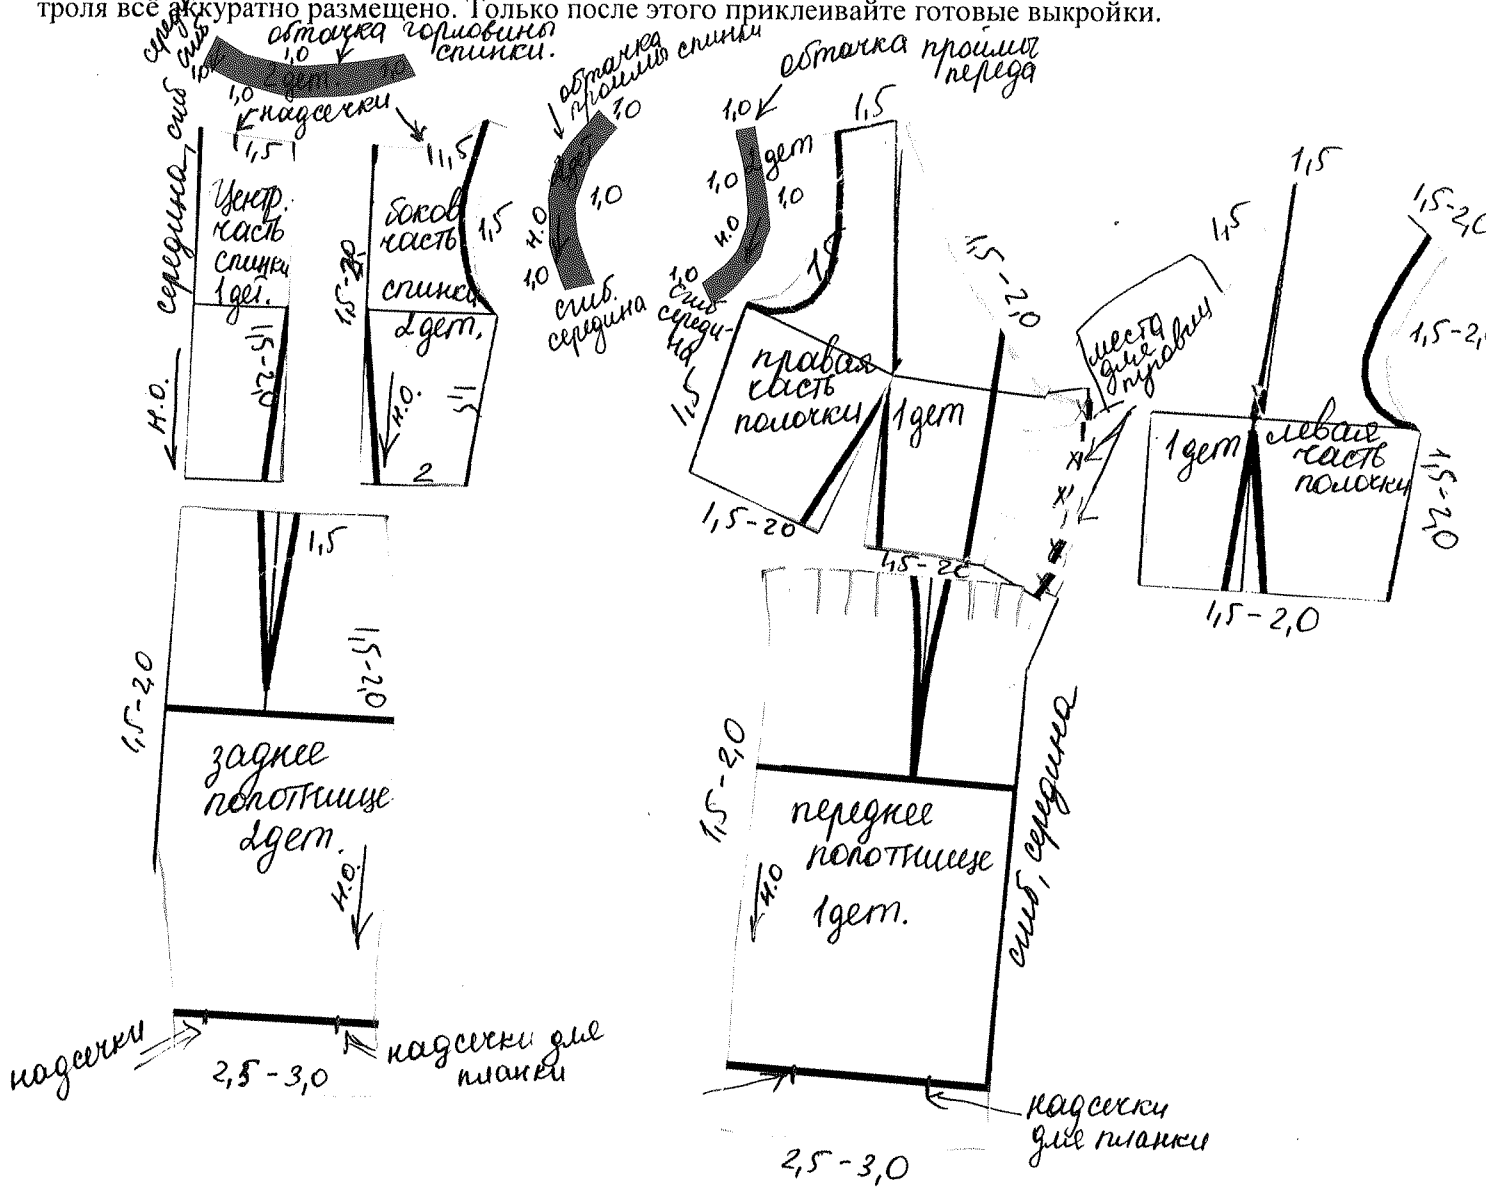 троля всё аккуратно размещено. Только после этого приклеивайте готовые выкройки.
обтачка горловины
спинки.
сгиб
1,0
1,0
2 дет
1,0
1,0
надсечки
середина, сгиб
1,5
Центр.
часть
спинки
1 дет.
1,5-2,0
н.о.
1,5
боковая
часть
спинки
2 дет.
1,5
1,5-2,0
н.о.
1,5
2
обтачка
проймы спинки
1,0
2 дет
1,0
н.о
1,0
сгиб.
середина
обтачка проймы
переда
1,0
2 дет
1,0
1,0
н.о
1,0
сгиб
середи-
на
1,5
1,5
правая
часть
полочки
1 дет
1,5
1,5-20
1,5-2,0
места
для
пуговиц
1,5
1,5
1,5-2,0
1,5-2,
1 дет
левая
часть
полочки
1,5-2,0
1,5-2,0
1,5
1,5-2,0
1,5-2,0
заднее
полотнище
2 дет.
н.о.
надсечки
надсечки для
планки
2,5-3,0
1,5-2,0
переднее
полотнище
1 дет.
н.о
сгиб, середина
надсечки
для планки
2,5-3,0